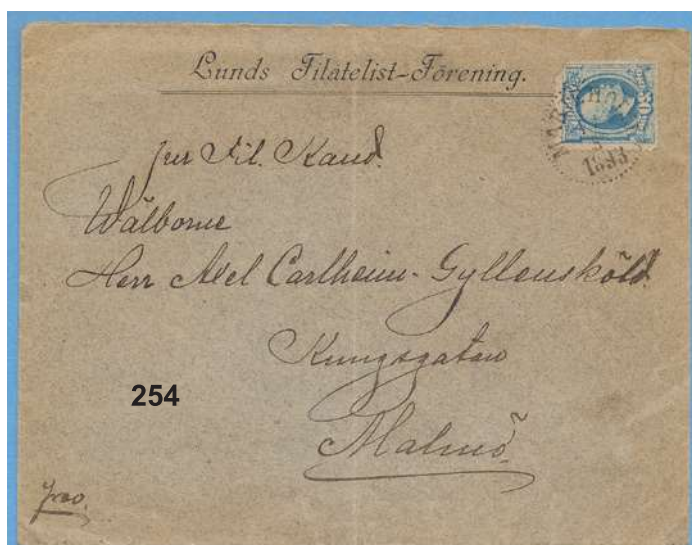 Lunds Filatelist-Förening.
1893
jur Fil. Kand.
Wälborne
Herr Axel Carlheim-Gyllensköld.
Kungsgatan
254
Malmö.